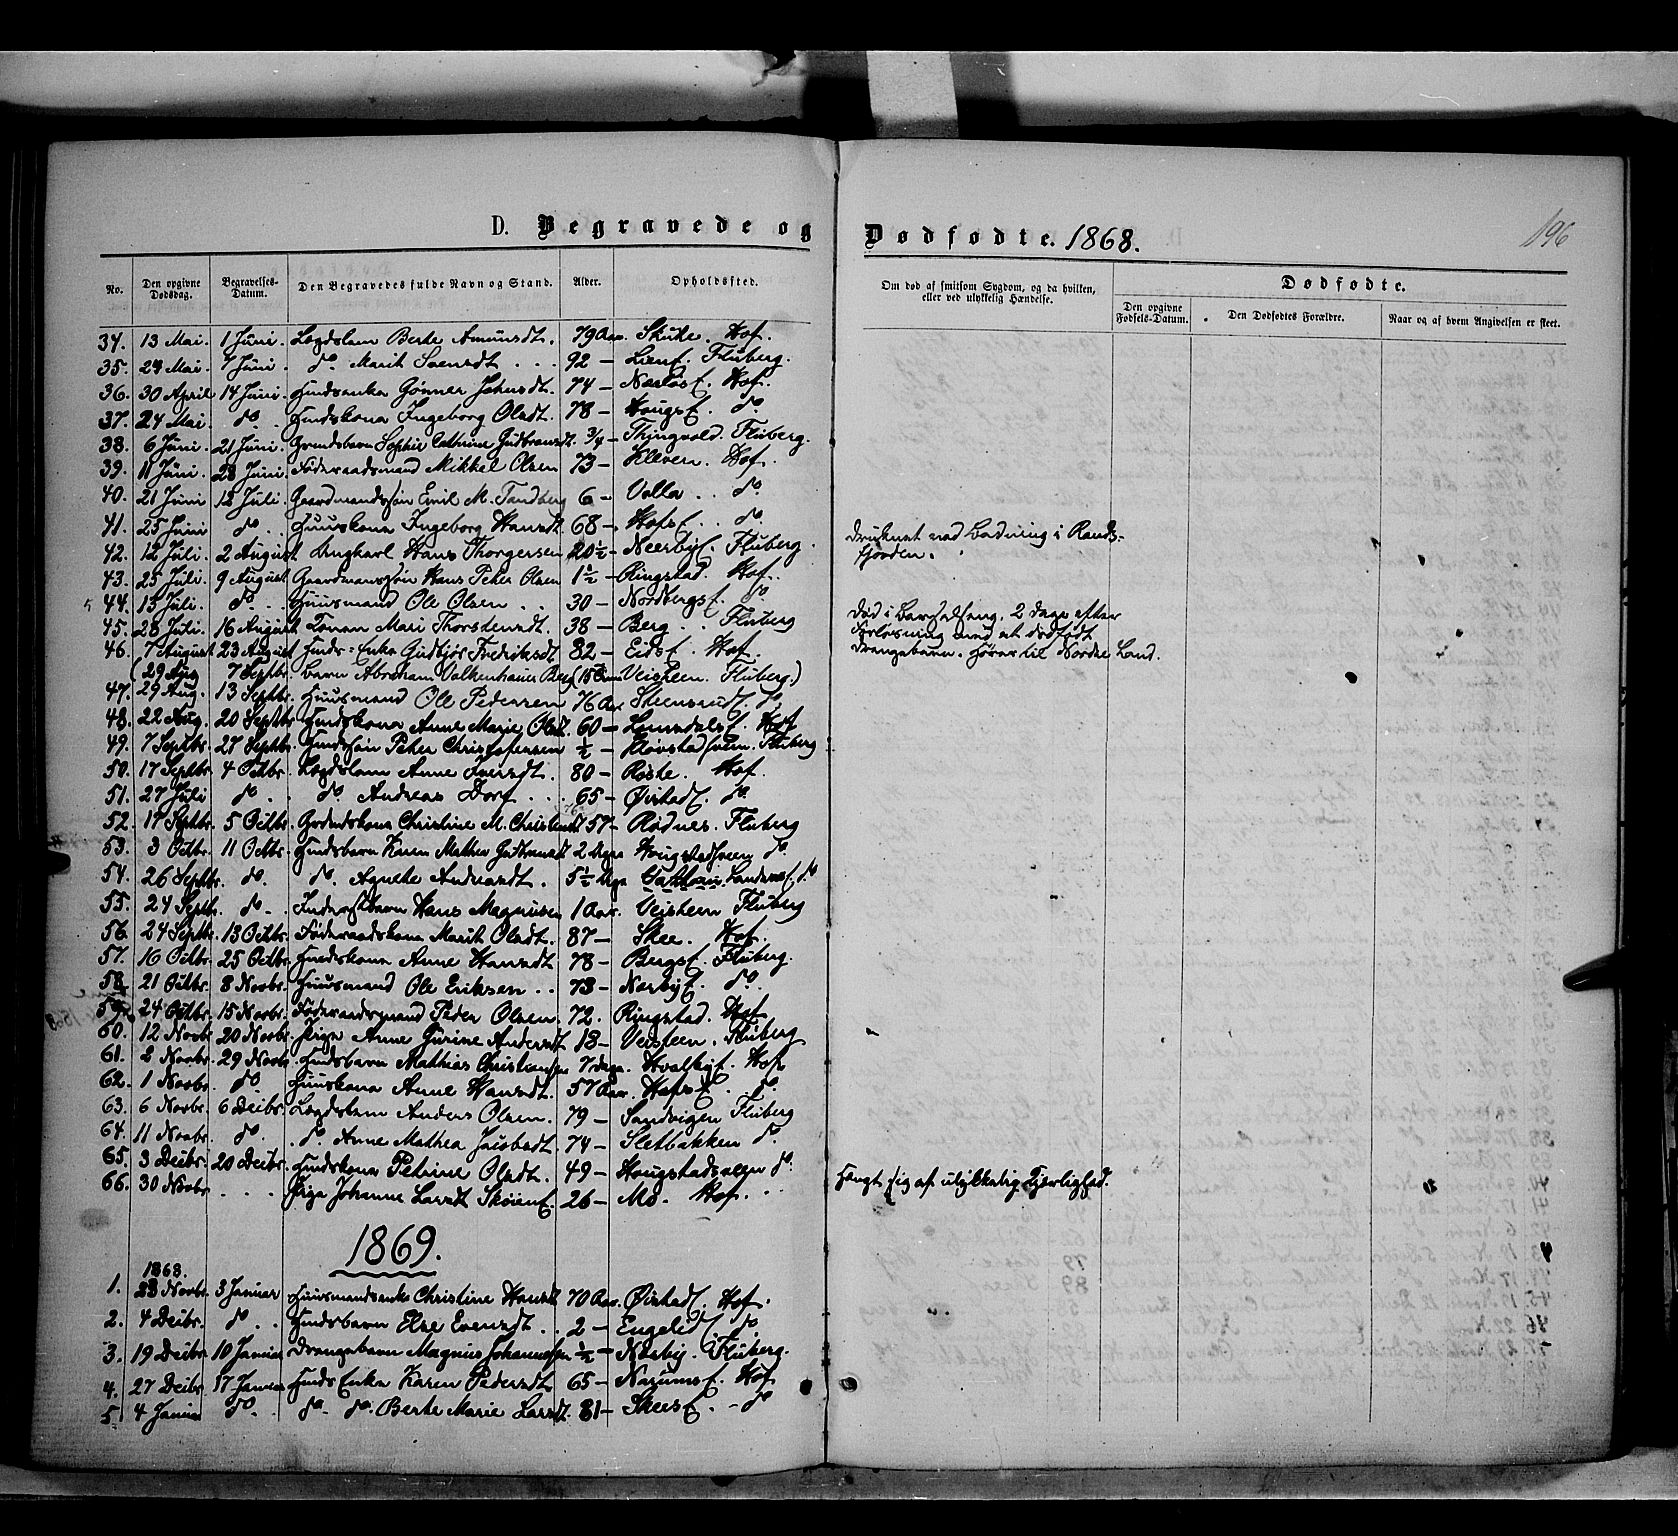 D. Begravede og Dødfødte. 1868.
196
No. Den opgivne Dødsdag. Begravelses-Datum. Den Begravedes fulde Navn og Stand. Alder. Opholdssted. Om død af smitsom Sygdom, og da hvilken, eller ved ulykkelig Hændelse. Dødfødte.
Den opgivne Fødsels-Datum. Den Dødfødtes Forældre. Naar og af hvem Angivelsen er skeet.
34. 13 Mai. 1 Juni. Lægdslem Berte Amundsdt. 79 Aar. Hof.
35. 24 Mai. 7 Juni. do. Marit Svensdt. 92 – Lien Fluberg.
36. 30 April 14 Juni. Huusenke Gønner Johnsdt. 74 – Hof.
37. 24 Mai. do. Huuskona Ingeborg Olsdt. 78 – Hougs do.
38. 6 Juni. 21 Juni. Sophie Cathrine Gudbransdt. 3/4 – Thingvold. Fluberg.
39. 11 Juni. 28 Juni. Føderaadsmand Mikkel Olsen 73 – Kleven. Hof.
40. 21 Juni 12 Juli. Gaardmandssøn Emil M. Tandberg 6 – Volla. do.
41. 25 Juni do. Huuskona Ingeborg Hansdt. 68 – Hofs do.
42. 12 Juli. 2 August Ungkarl Hans Thorgersen 20½ – Neerby Fluberg. Druknet ved Badning i Randsfjorden.
43. 25 Juli. 9 August Gaardmanssøn Hans Peter Olsen 1½ – Ringstad. Hof.
44. 15 Juli. do. Huusmand Ole Olsen 30 – Nordbergs do.
45. 28 Juli. 16 August Konen Mari Thorstensdt. 38 – Berg Fluberg Død i Barselseng, 2 Dage efter Forløsning med et dødfødt Drengebarn. Hører til Nordre Land.
46. 7 August 23 August Huuds-Enke Gudbjør Fredriksdt 82 – Eids Hof.
(29 Aug 7 Septbr. barn Abraham Valkenhauer Berg (15 Veisteen. Fluberg.)
47. 29 Aug. 13 Septbr. Huusmand Ole Pedersen 76 Aar Steensrud do.
48. 22 Aug. 20 Septbr Huuskona Anne Marie Olsdt. 60 – Lomsdals Hof
49. 7 Septbr. 27 Septbr. Huudssøn Peter Christophersen ½ – Fluberg
50. 17 Septbr. 4 Octbr. Lægdslem Anne Iversdt. 80 – Røste. Hof.
51. 27 Juli do. do. Andreas Dorf 65 – Øistad do.
52. 17 Septbr. 5 Octbr. Christine M. Christensdt 57 – Rødnes. Fluberg
53. 3 Octbr. 11 Octbr. Huudsbarn Karen Mathea Gudbransdt 2 Uger Hougstadsveen do.
54. 26 Septbr. do. do. Agnethe Andersdt. 5½ Uge Landaas do
55. 24 Septbr. do. Inderstbarn Hans Magnusen 1 Aar. Veisteen Fluberg
56. 24 Septbr. 13 Octbr. Føderaadskona Marit Olsdt. 87 – Skee. Hof.
57. 16 Octbr. 25 Octbr. Huuskona Anne Hansdt 78 – Bergs Fluberg.
58. 21 Octbr. 8 Novbr. Huusmand Ole Eriksen 73 – Nærby do.
59. 24 Octbr. 15 Novbr. Føderaadsmand Peder Olsen 72. Ringstad. Hof
60. 12 Novbr 20 Novbr. Pige Anne Gurine Andersdt 18 – Veisteen. Fluberg
61. 2 Novbr. 29 Novbr. Huudsbarn Mathias Christiansen 7 Dage. Hvalby Hof
62. 1 Novbr. do. Huuskona Anne Hansdt. 57 Aar. Hofs do.
63. 6 Novbr. 6 Decbr. Lægdslem Anders Olsen. 79 – Sandvigen Fluberg
64. 11 Novbr. do. do. Anne Mathea Jacobsdt. 74 – Sletbakken do.
65. 3 Decbr. 20 Decbr. Huudskona Petrine Olsdt. 49 – Hougstadsveen do.
66. 30 Novbr. Pige Johanne Larsdt Skøien 26 – Mo. Hof. Hængt sig af ulykkelig Kjærlighed.
1869.
1868.
1. 28 Novbr. 3 Januar Huusmandsenke Christine Hansdt 70 Aar. Øistad Hof.
2. 4 Decbr. do. Huudsbarn Else Evensdt. 2 – Engelid do
3. 19 Decbr. 10 Januar Drengebarn Magnus Johannesen ½ – Nærby. Fluberg.
4. 27 Decbr. 17 Januar Huuds Enke Karen Pedersdt 65 – Narums Hof
5. 4 Januar do. do. do. Berte Marie Larsdt. 81 – Skees do